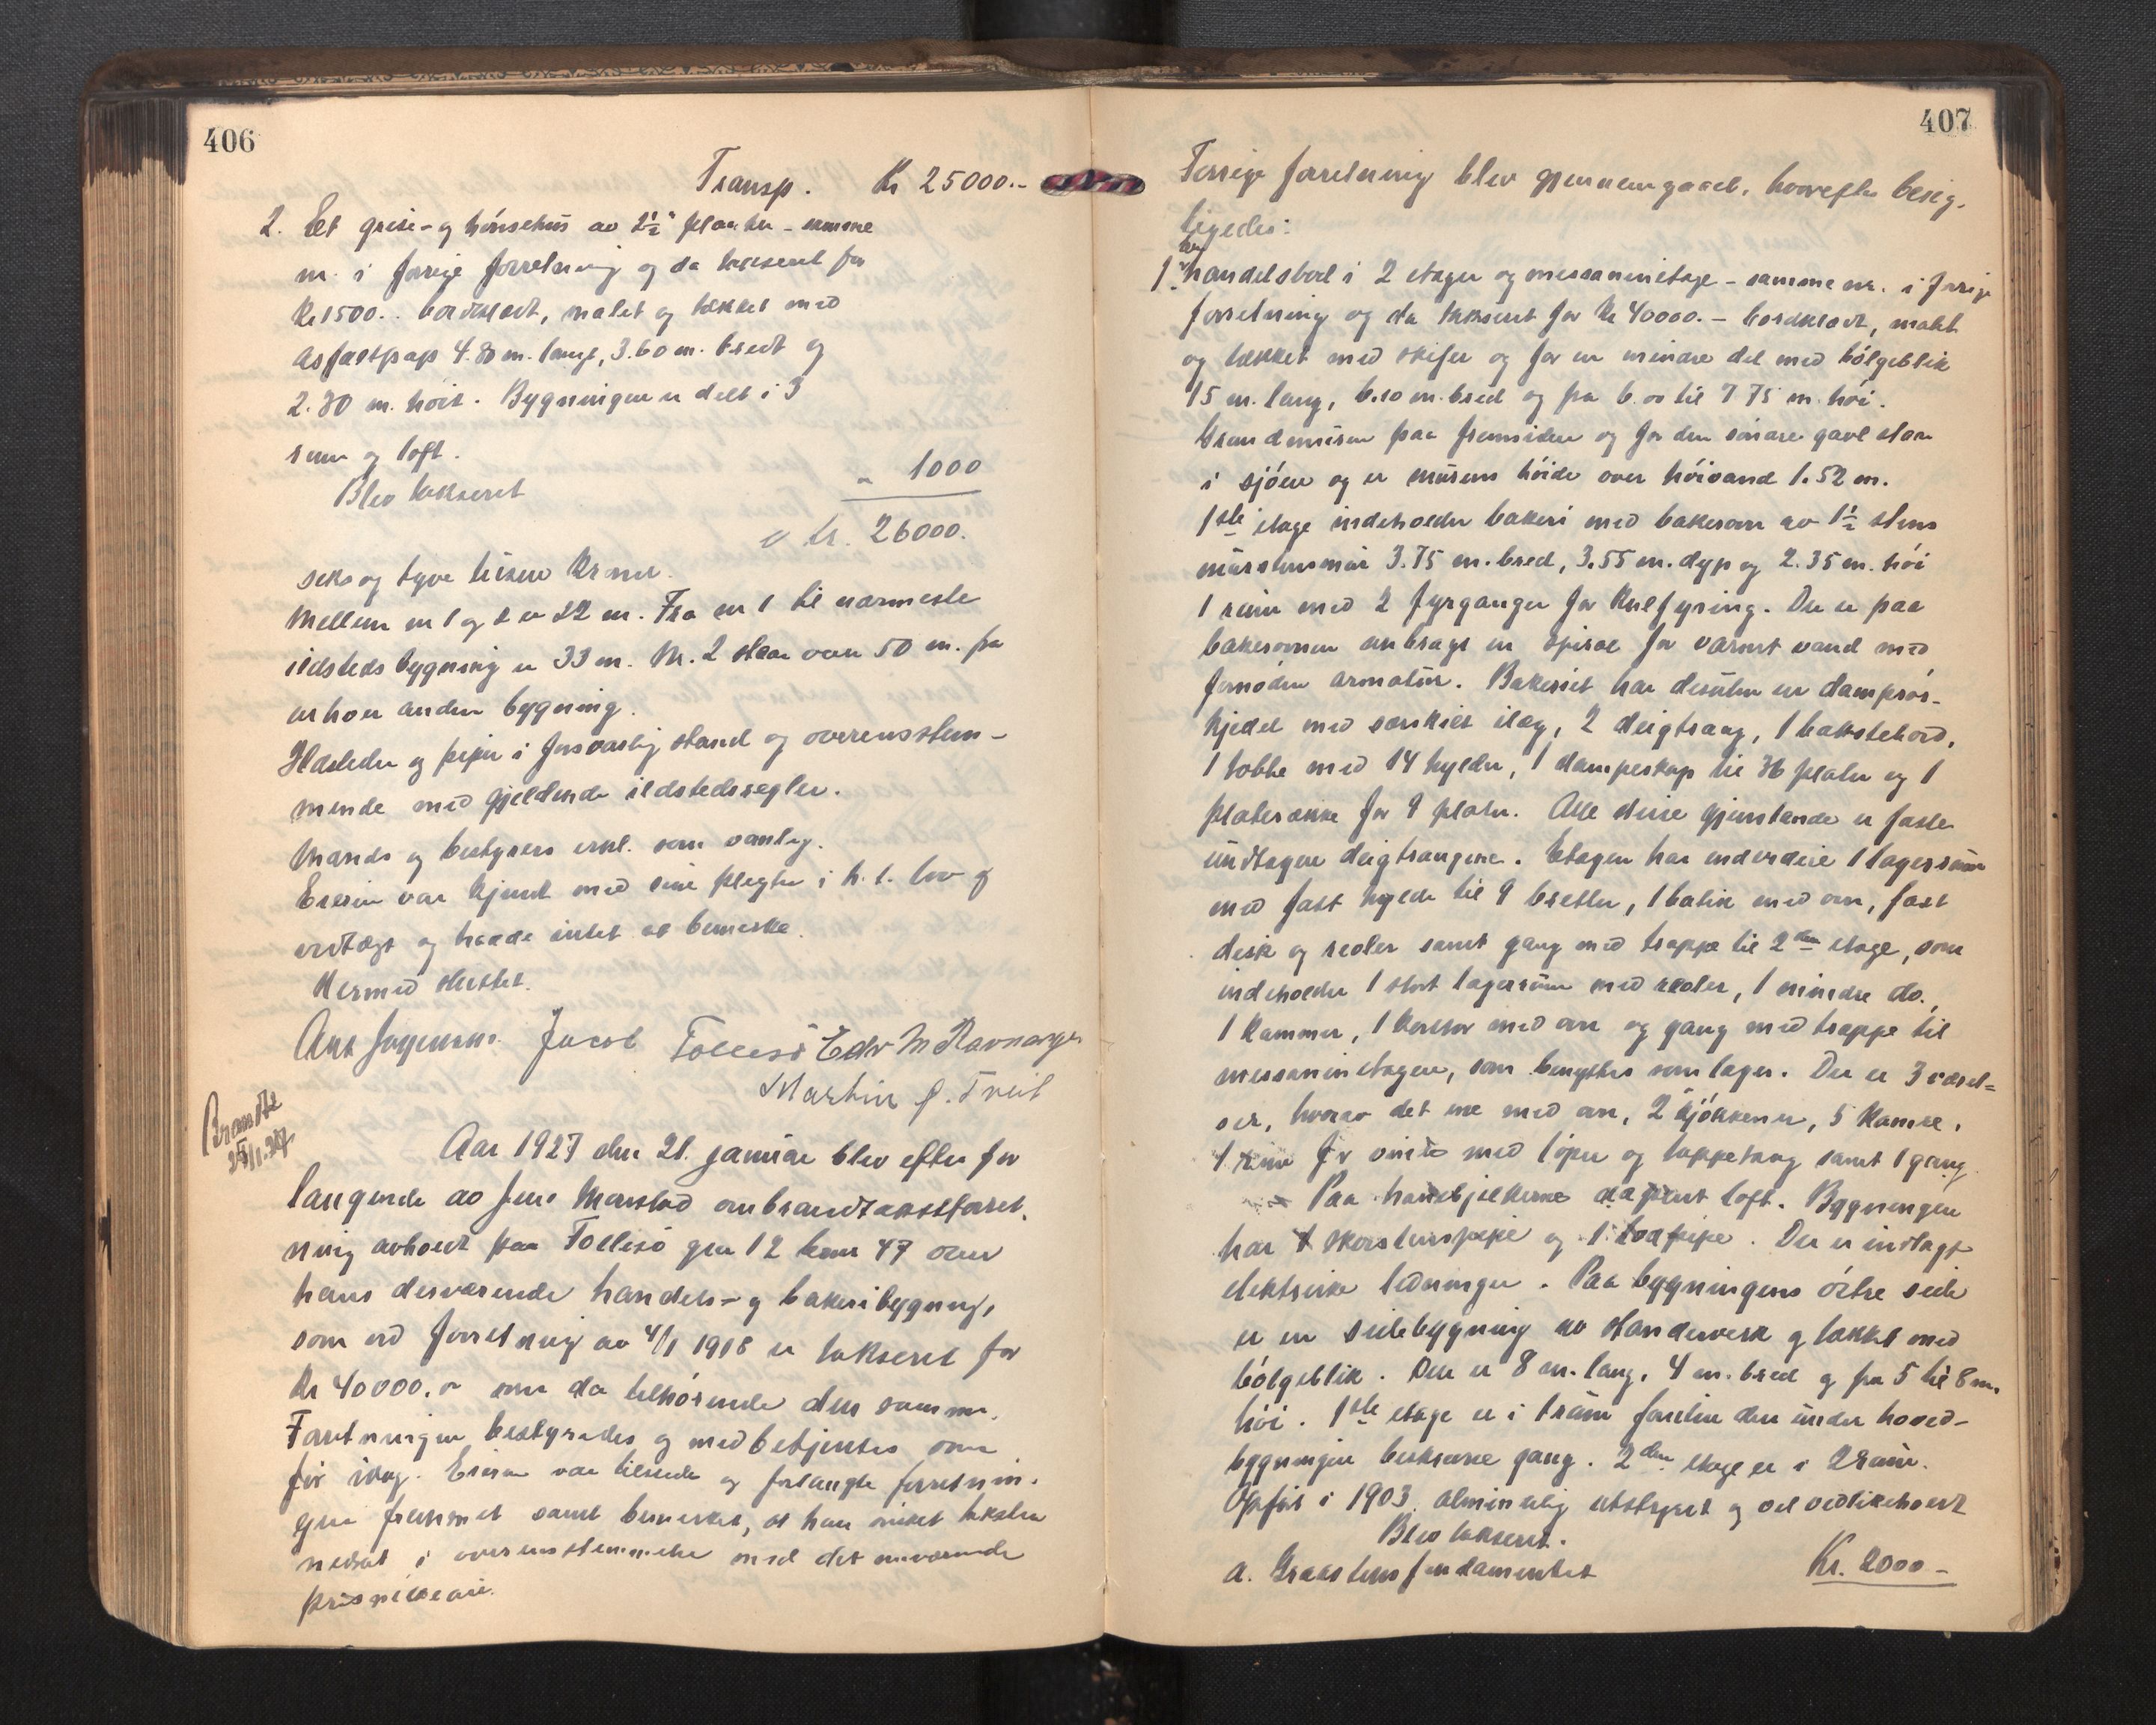 406
Transp. Kr 25000.-
2. Et grise- og hönsehus av 2½" planker - samme
nr. i forrige forretning og da taksert for
Kr 1500.- bordklædt, malet og tækket med
asfaltpap 4.80 m. langt, 3.60 m. bredt og
2.30 m. höit. Bygningen er delt i 3
rum og loft.
Blev takseret " 1000
kr. 26000.
seks og tyve tusen kroner.
Mellem nr 1 og 2 er 22 m. Fra nr 1 til nærmeste
ildstedsbygning er 33 m. Nr. 2 staar over 50 m. fra
enhver anden bygning.
Ildsteder og piper i forsvarlig stand og overensstem-
mende med gjeldende ildstedsregler.
Mænds og bestyrers erkl. som vanlig.
Eieren var kjendt med sine plegter i h. t. lov og
vedtægt og hadde intet at bemerke.
Hermed sluttet.
Jacob Tollesö Edv M Ravnanger
Martin J. Tveit
Brandtf.
25/1.27
Aar 1927 den 21. januar blev efter for
langende av Jens Monstad ombrandtakstforret.
ning avholdt paa Tollesö gnr 12 bnr 47 over
hans desværende handels- og bakeribygning,
som ved forretning av 4/1 1918 er takseret for
Kr 40000.- som da tilhörende den samme.
Forretningen bestyredes og medbetjentes som
för idag. Eieren var tilstede og forlangte forretnin.
gen fremmet samt bemerket, at han önsket taksten
nedsat i overensstemmelse med det nuværende
prisnivaa.
407
Forrige forretning blev gjennemgaaet, hvorefter besig.
tigedes:
1. En handelsbod i 2 etager og messaninetage - samme nr. i forrige
forretning og da takseret for Kr 40000.- bordklædt, malet
og tækket med skifer og for en mindre del med bölgeblik
15 m. lang, 6.10 m. bred og fra 6.00 til 7.75 m. höi.
Grundmuren paa fremsiden og for den söndre gavl staar
i sjöen og er murens höide over höivand 1.52 m.
1ste etage indeholder bakeri med bakerovn av 1½ stens
murstensmur 3.75 m. bred, 3.55 m. dyp og 2.35 m. höi
1 rum med 2 fyrganger for kulfyring. Der er paa
bakerovnen anbragt en spiral for varmt vand med
fornöden armatur. Bakeriet har desuten en damprörs-
kjedel med særskilt ilæg, 2 deigtraug, 1 bakstebord,
1 tobbe med 14 hylder, 1 dampeskap til 36 plater og 1
platerække for 9 plater. Alle disse gjenstande er faste
undtagen deigtraugene. Etagen har endvidere 1 lagerrum
med fast hylde til 9 bretter, 1 butik med ovn, fast
disk og reoler samt gang med trappe til 2den etage, som
indeholder 1 stort lagerrum med reoler, 1 mindre do.,
1 kammer, 1 kontor med ovn og gang med trappe til
messaninetagen, som benyttes som lager. Der er 3 værel-
ser, hvorav det ene med ovn, 2 kjökkener, 5 kamre,
1 rum for med og samt 1 gang
Paa hanebjelkerne aapent loft. Bygningen
har 1 skorstenspipe og 1 pipe. Der er indlagt
elektriske ledninger. Paa bygningens östre side
er en sidebygning av standerverk og tækket med
bölgeblik. Den er 8 m. lang, 4 m. bred og fra 5 til 8 m.
höi. 1ste etage er i 1 rum foruten den under hoved-
bygningen beskrevne gang. 2den etage er i 2 rum.
Opfört i 1903. alminnelig utstyret og vel vedlikeholdt
Blev takseret.
a. Graastensfundamentet Kr. 2000-